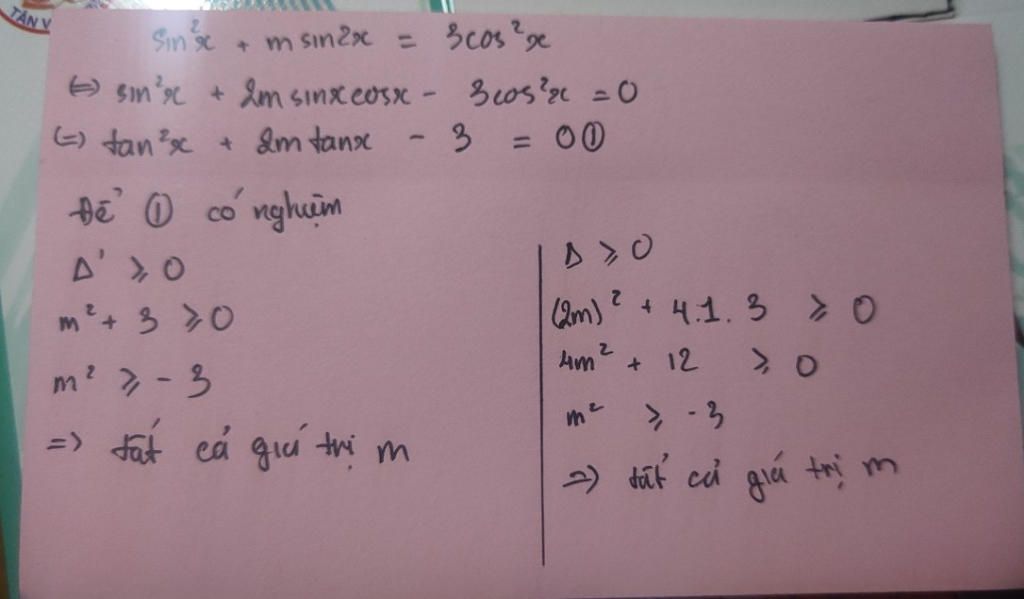 TÂN V
sin²x + m sin2x = 3cos²x
⇔ sin²x + 2m sinx cosx - 3cos²x = 0
(=) tan²x + 2m tanx - 3 = 0 ①
Để ① có nghiệm
Δ' ⩾ 0
m² + 3 ⩾ 0
m² ⩾ - 3
=> tất cả giá trị m
Δ ⩾ 0
(2m)² + 4.1.3 ⩾ 0
4m² + 12 ⩾ 0
m² ⩾ -3
=> tất cả giá trị m